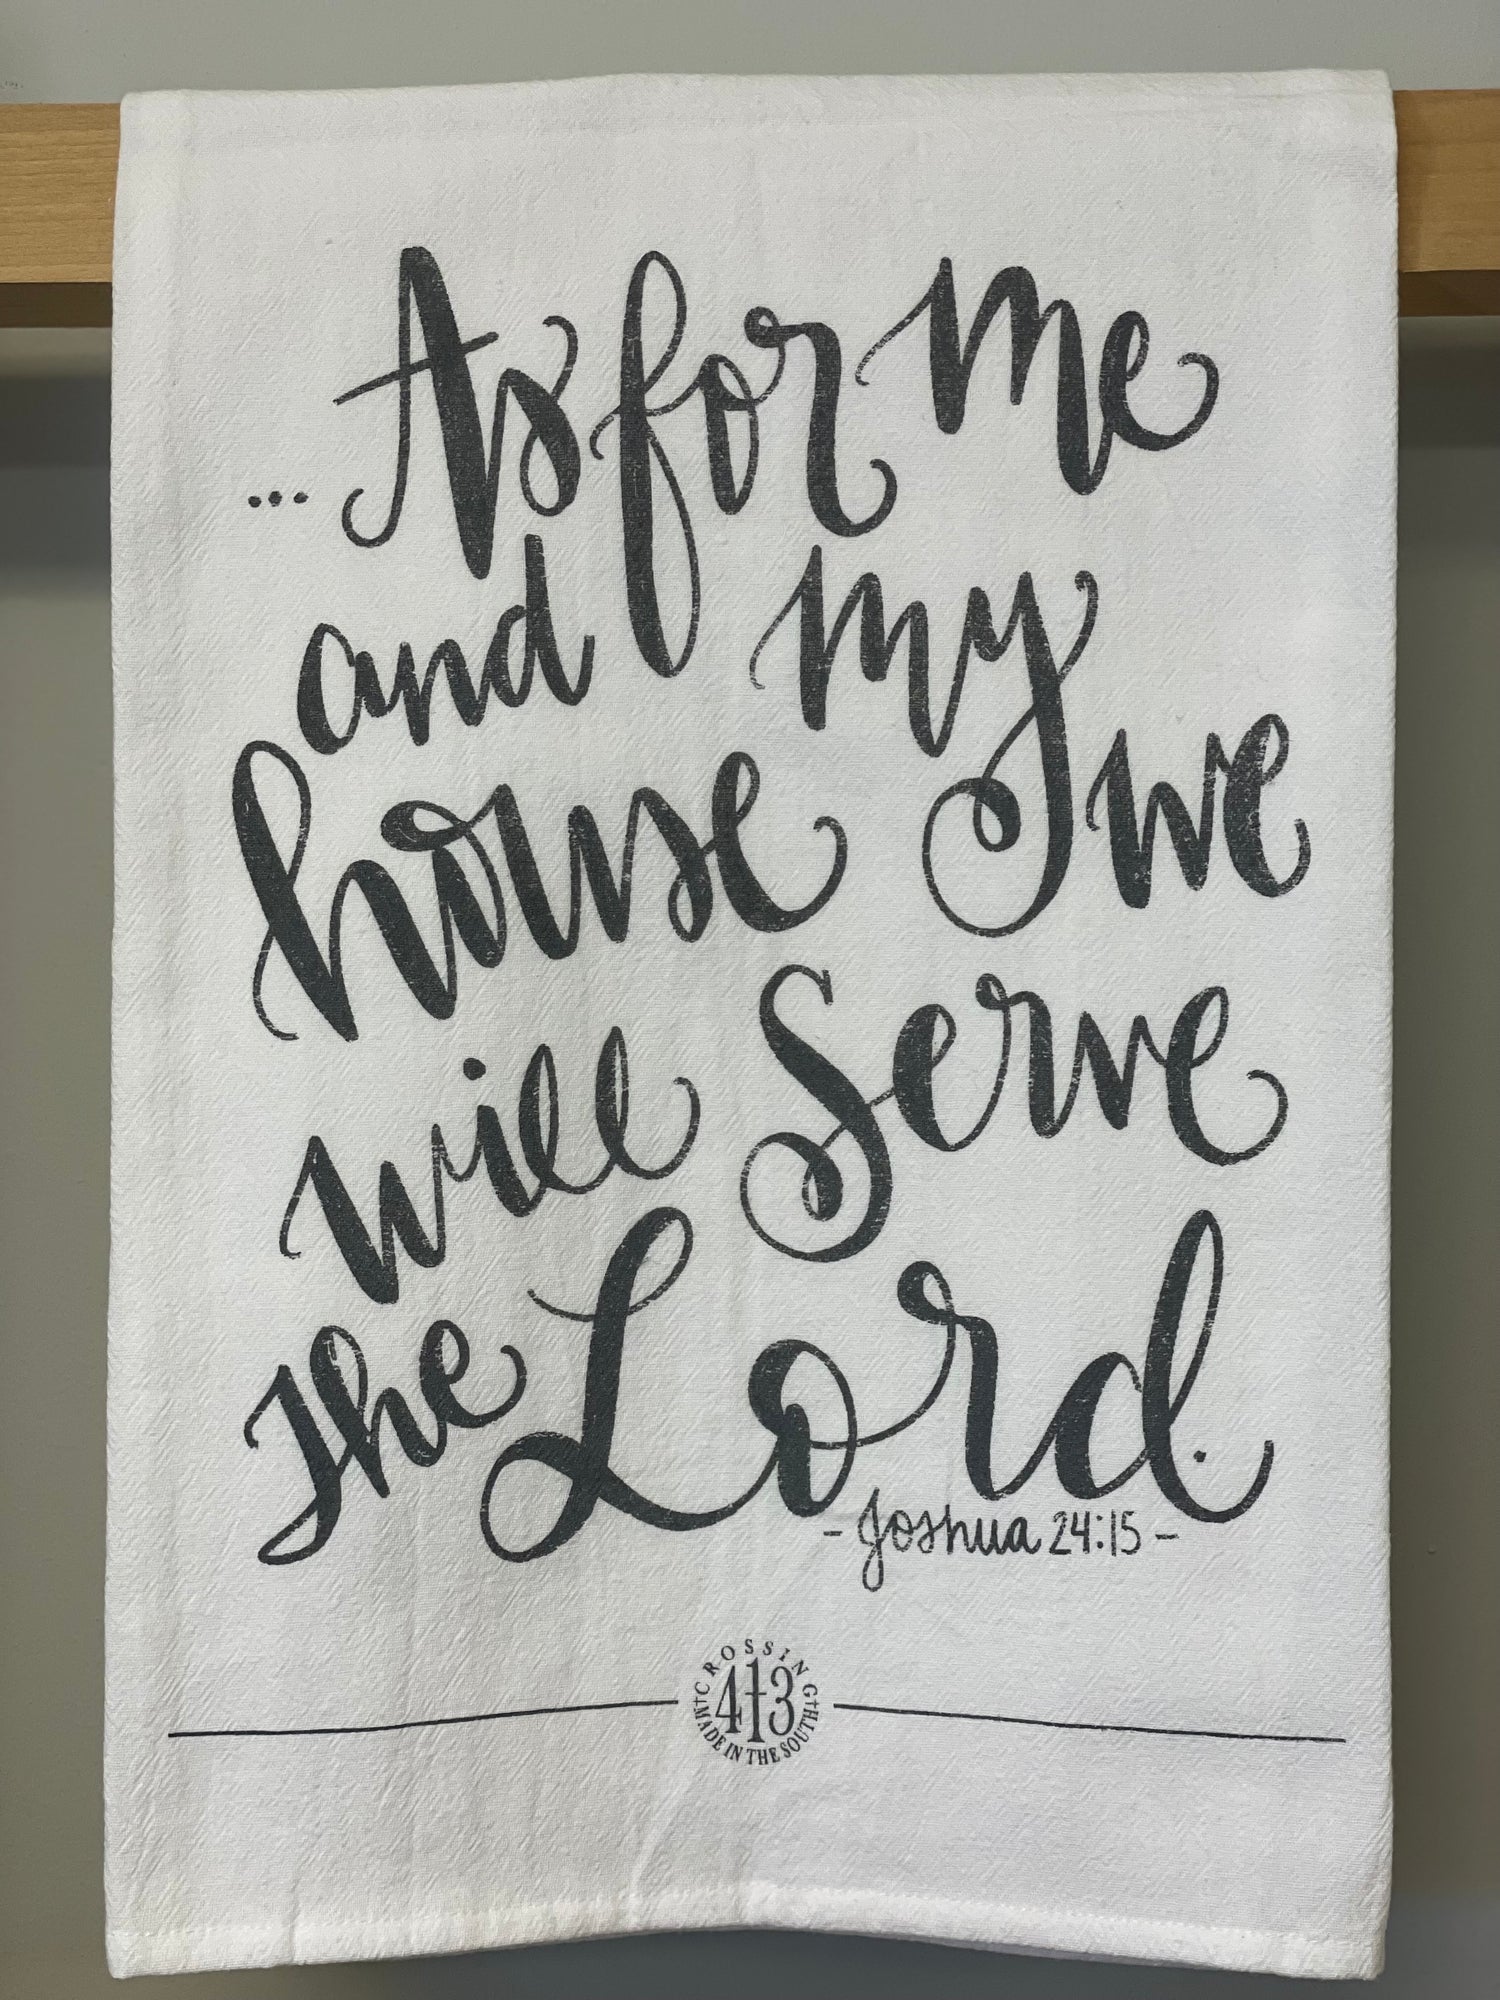 ...As for me
and my
house we
will serve
the Lord.
- Joshua 24:15 -
†CROSSING†
413
MADE IN THE SOUTH